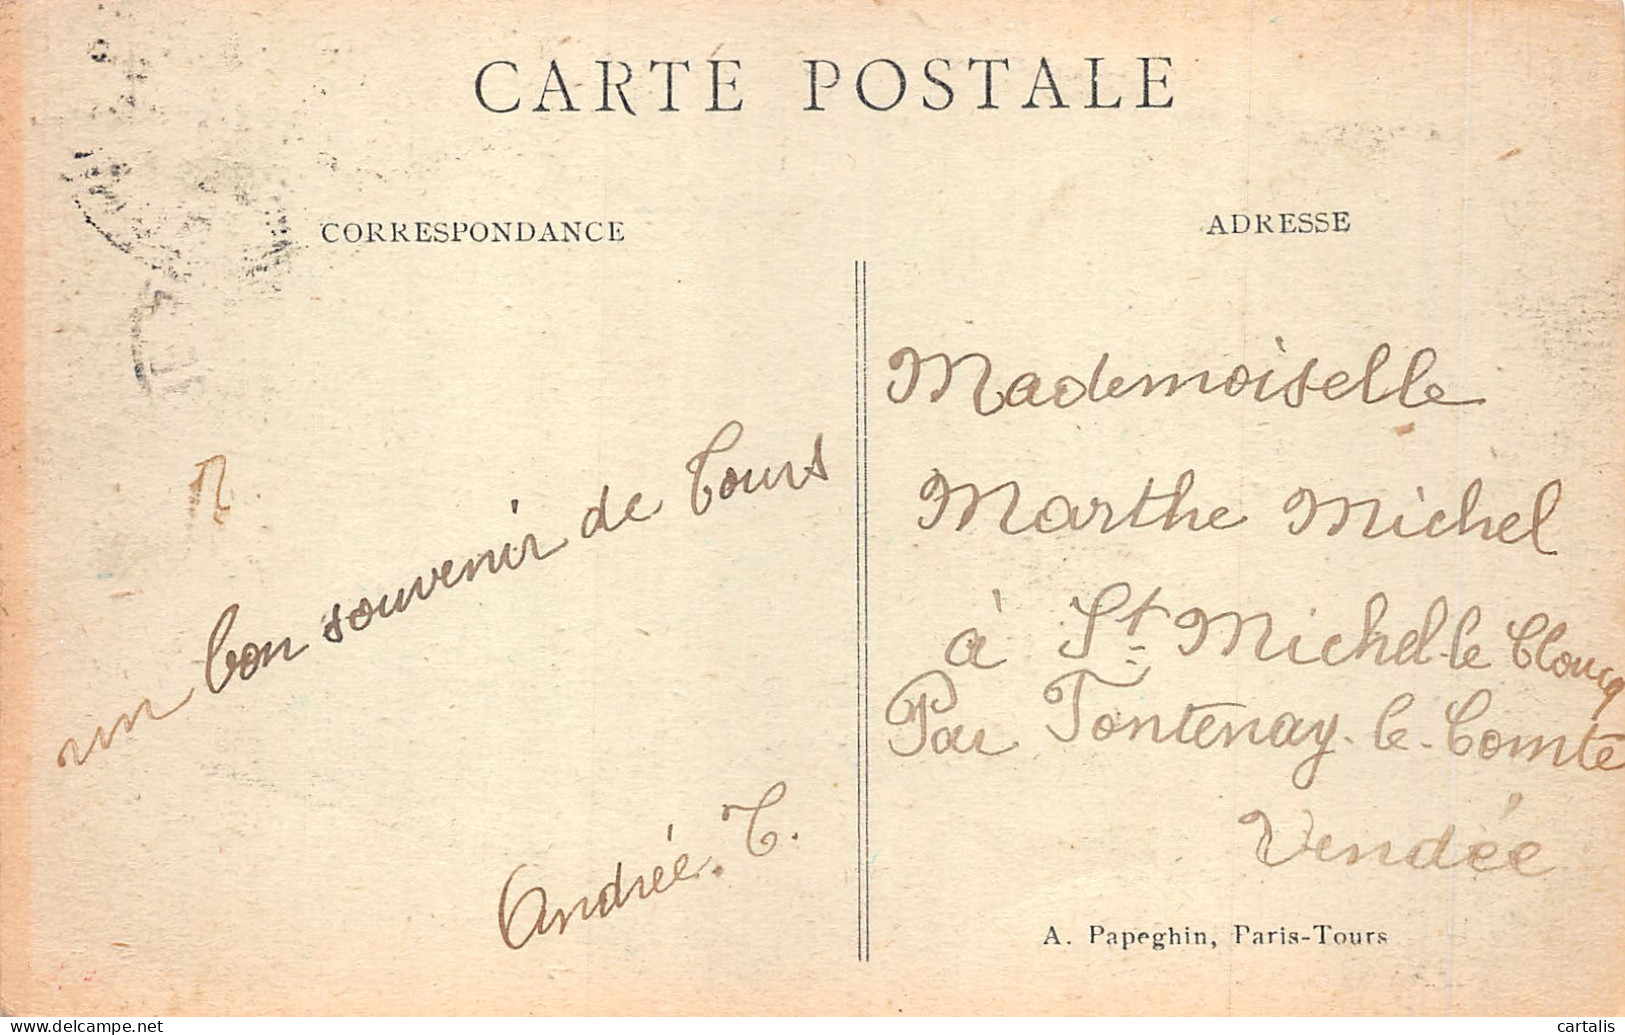 CARTE POSTALE
CORRESPONDANCE
ADRESSE
un bon souvenir de Tours
Andrée. T.
Mademoiselle
Marthe Michel
à St Michel-le Cloucq
Par Fontenay-le-Comte
Vendée
A. Papeghin, Paris-Tours
delcampe.net
cartalis